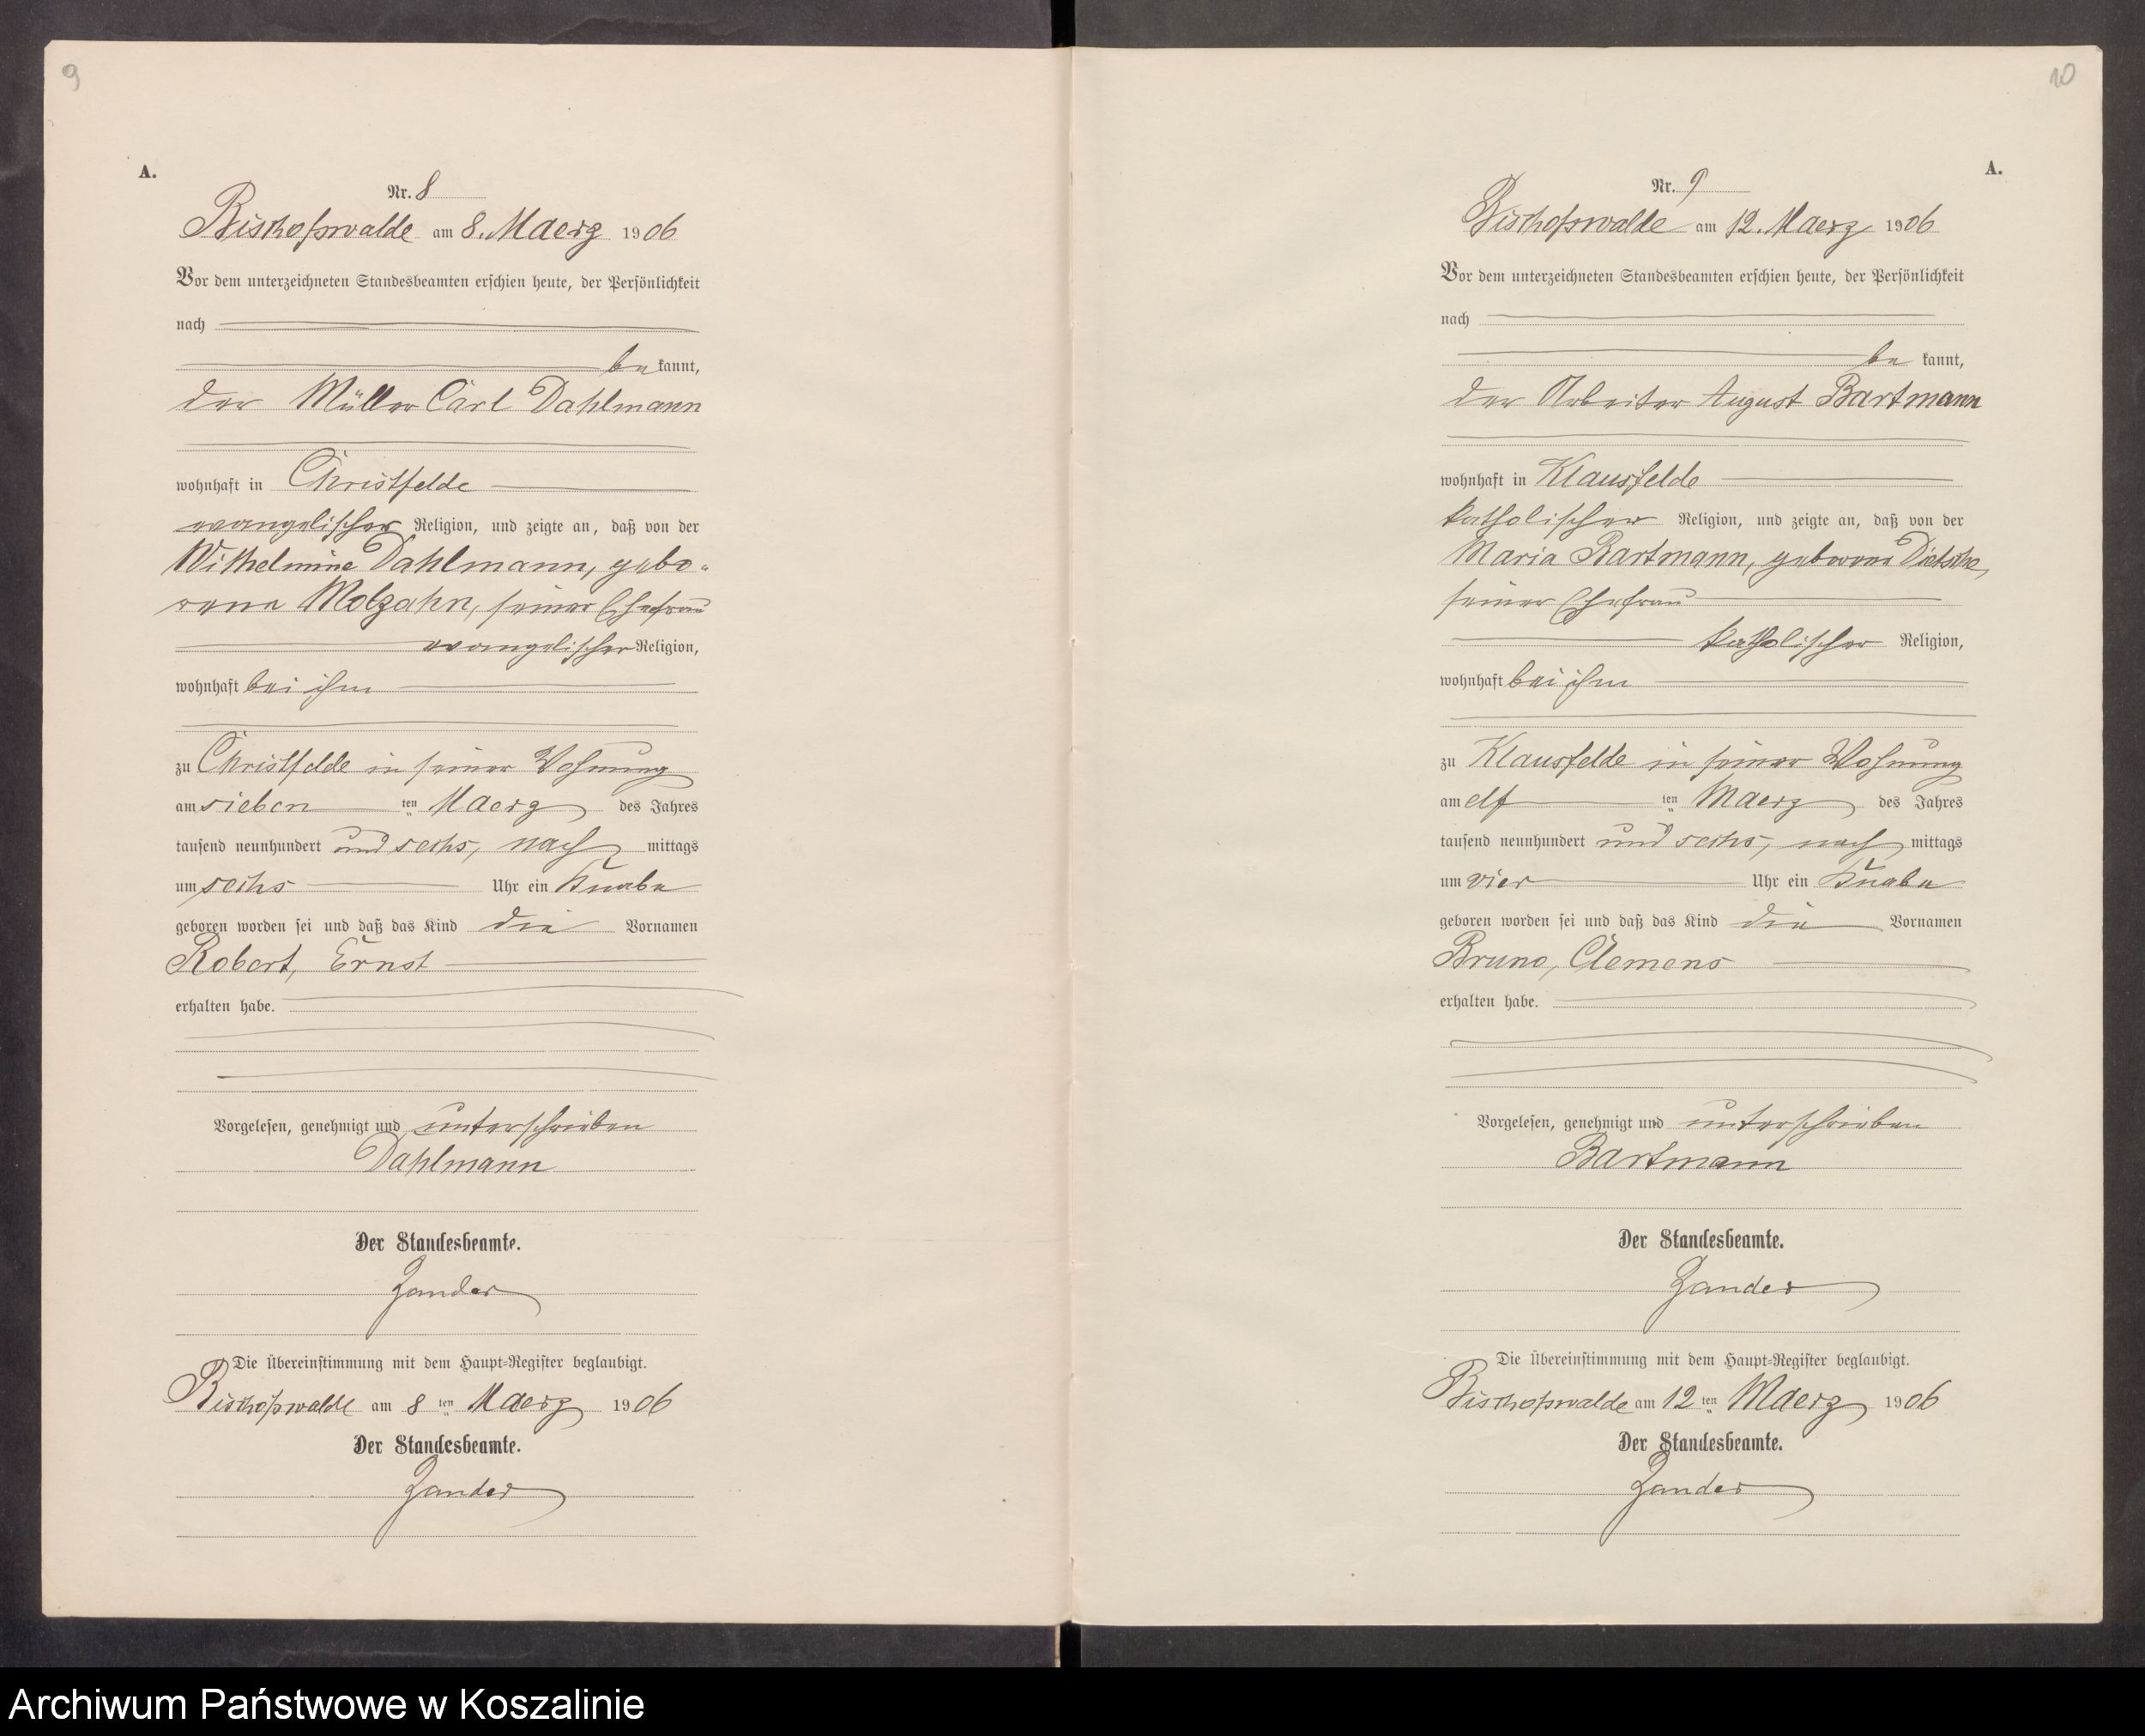 9
A.
Nr. 8
Bischofswalde am 8. Maerz 1906
Vor dem unterzeichneten Standesbeamten erschien heute, der Persönlichkeit
nach
be kannt,
der Müller Carl Dahlmann
wohnhaft in Christfelde
evangelischer Religion, und zeigte an, daß von der
Wilhelmine Dahlmann, gebo-
rene Molzahn, seiner Ehefrau
evangelischer Religion,
wohnhaft bei ihm
zu Christfelde in seiner Wohnung
am sieben ten Maerz des Jahres
tausend neunhundert und sechs, nach mittags
um sechs Uhr ein Knabe
geboren worden sei und daß das Kind die Vornamen
Robert, Ernst
erhalten habe.
Vorgelesen, genehmigt und unterschrieben
Dahlmann
Der Standesbeamte.
Zander
Die Übereinstimmung mit dem Haupt-Register beglaubigt.
Bischofswalde am 8 ten Maerz 1906
Der Standesbeamte.
Zander
10
A.
Nr. 9
Bischofswalde am 12. Maerz 1906
Vor dem unterzeichneten Standesbeamten erschien heute, der Persönlichkeit
nach
be kannt,
der Arbeiter August Bartmann
wohnhaft in Klausfelde
katholischer Religion, und zeigte an, daß von der
Maria Bartmann, geborene Dietsche,
seiner Ehefrau
katholischer Religion,
wohnhaft bei ihm
zu Klausfelde in seiner Wohnung
am elf ten Maerz des Jahres
tausend neunhundert und sechs, nach mittags
um vier Uhr ein Knabe
geboren worden sei und daß das Kind die Vornamen
Bruno, Clemens
erhalten habe.
Vorgelesen, genehmigt und unterschrieben
Bartmann
Der Standesbeamte.
Zander
Die Übereinstimmung mit dem Haupt-Register beglaubigt.
Bischofswalde am 12 ten Maerz 1906
Der Standesbeamte.
Zander
Archiwum Państwowe w Koszalinie